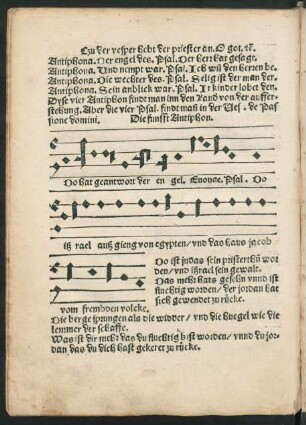 Zu der vesper hebt der priester an. O got. ꝛc.
Antiphona. Der engel des. Psal. Der herr hat gesagt.
Antiphona. Und nempt war. Psal. Ich wil den herren be.
Antiphona. Die wechter des. Psal. Selig ist der man der.
Antiphona. Sein anblick war. Psal. Ir kinder lobet den.
Dyse vier Antiphon findt man inn den Laud von der auffer-
stehung. Aber die vier Psal. findt mañ in der Ves. de Pas
sione domini. Die funfft Antiphon.
Do hat geantwort der en gel. Euouae. Psal. Do
itz rael auß gieng von egypten/ vnd das hauß jacob
Do ist judas sein pristerthū wor
den/ vnd ißrael sein gewalt.
Das mehr hats gesehn vnnd ist
fluchtig worden/ der jordan hat
sich gewendet zu rücke.
vom frembden volcke.
Die berge sprungen als die widder/ vnd die huegel wie die
lemmer der schaffe.
Was ist dir mehr das du fluchtig bist worden/ vnnd du jor-
dan das du dich hast gekeret zu rücke.